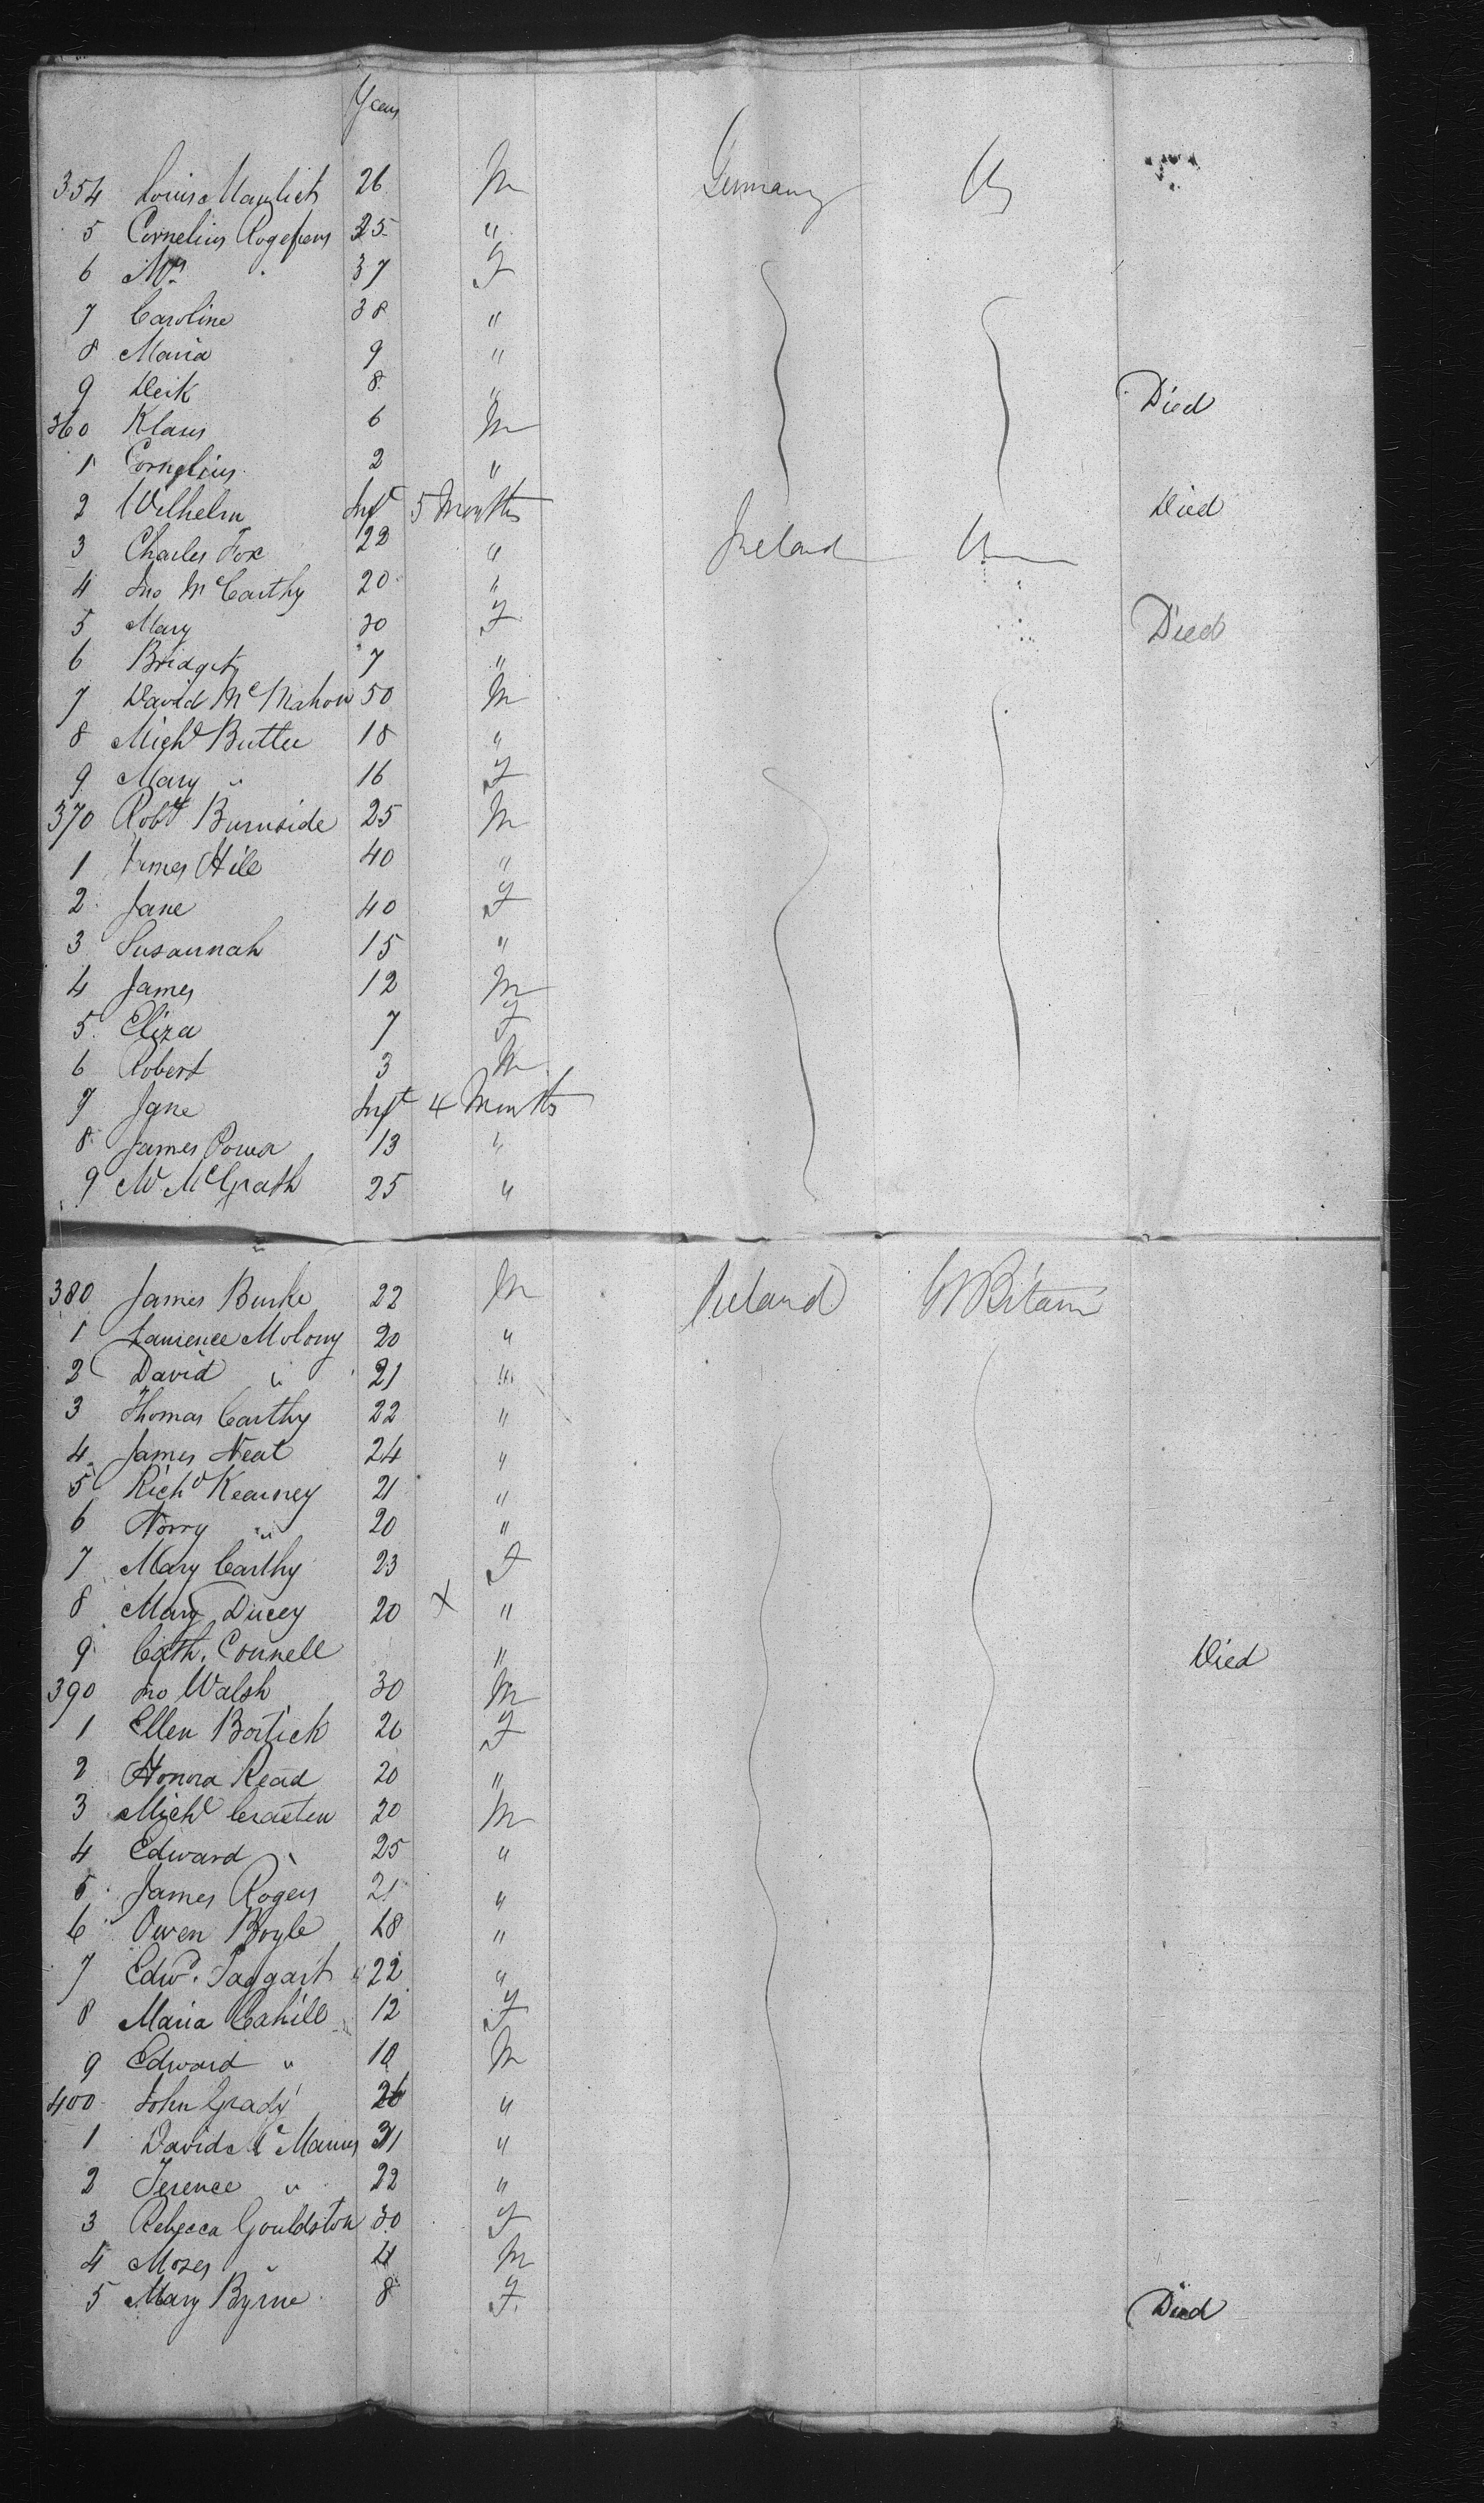 Years
354 Louis Mauglich 26 M Germany US
5 Cornelius Rogepens 35 "
6 Mrs " 37 F
7 Caroline 38 "
8 Maria 9 "
9 Deik 8 " Died
360 Klaus 6 M
1 Cornelius 2 "
2 Wilhelm Inft 5 Months Died
3 Charles Fox 22 " Ireland U
4 Jno McCarthy 20 "
5 Mary 30 F Died
6 Bridget 7 "
7 David McMahon 50 M
8 Michl Butler 18 "
9 Mary " 16 F
370 Robt Burnside 25 M
1 James Hill 40 "
2 Jane 40 F
3 Susannah 15 "
4 James 12 M
5 Eliza 7 F
6 Robert 3 M
7 Jane Inft 4 Months
8 James Power 13 "
9 W McGrath 25 "
380 James Burke 22 M Ireland Gt Bitain
1 Laurence Molony 20 "
2 David " 21 "
3 Thomas Carthy 22 "
4 James Neat 24 "
5 Richd Kearney 21 "
6 Norry " 20 "
7 Mary Carthy 23 F
8 Mary Ducey 20 X "
9 Cath. Connell " Died
390 Jno Walsh 30 M
1 Ellen Bostick 20 F
2 Honora Read 20 "
3 Michl Crasten 20 M
4 Edward " 25 "
5 James Rogers 21 "
6 Owen Boyle 18 "
7 Edwd. Taggart 22 "
8 Maria Cahill 12 F
9 Edward " 10 M
400 John Grady 26 "
1 David McManus 31 "
2 Terence " 22 "
3 Rebecca Gouldston 30 F
4 Moses " 4 M
5 Mary Byrne 8 F. Died